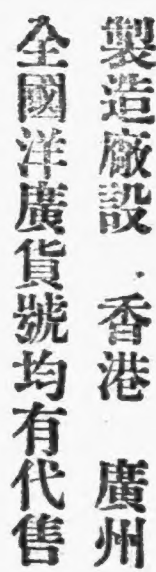 製造廠設 香港 廣州
全國洋廣貨號均有代售